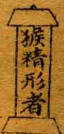 猴精形者